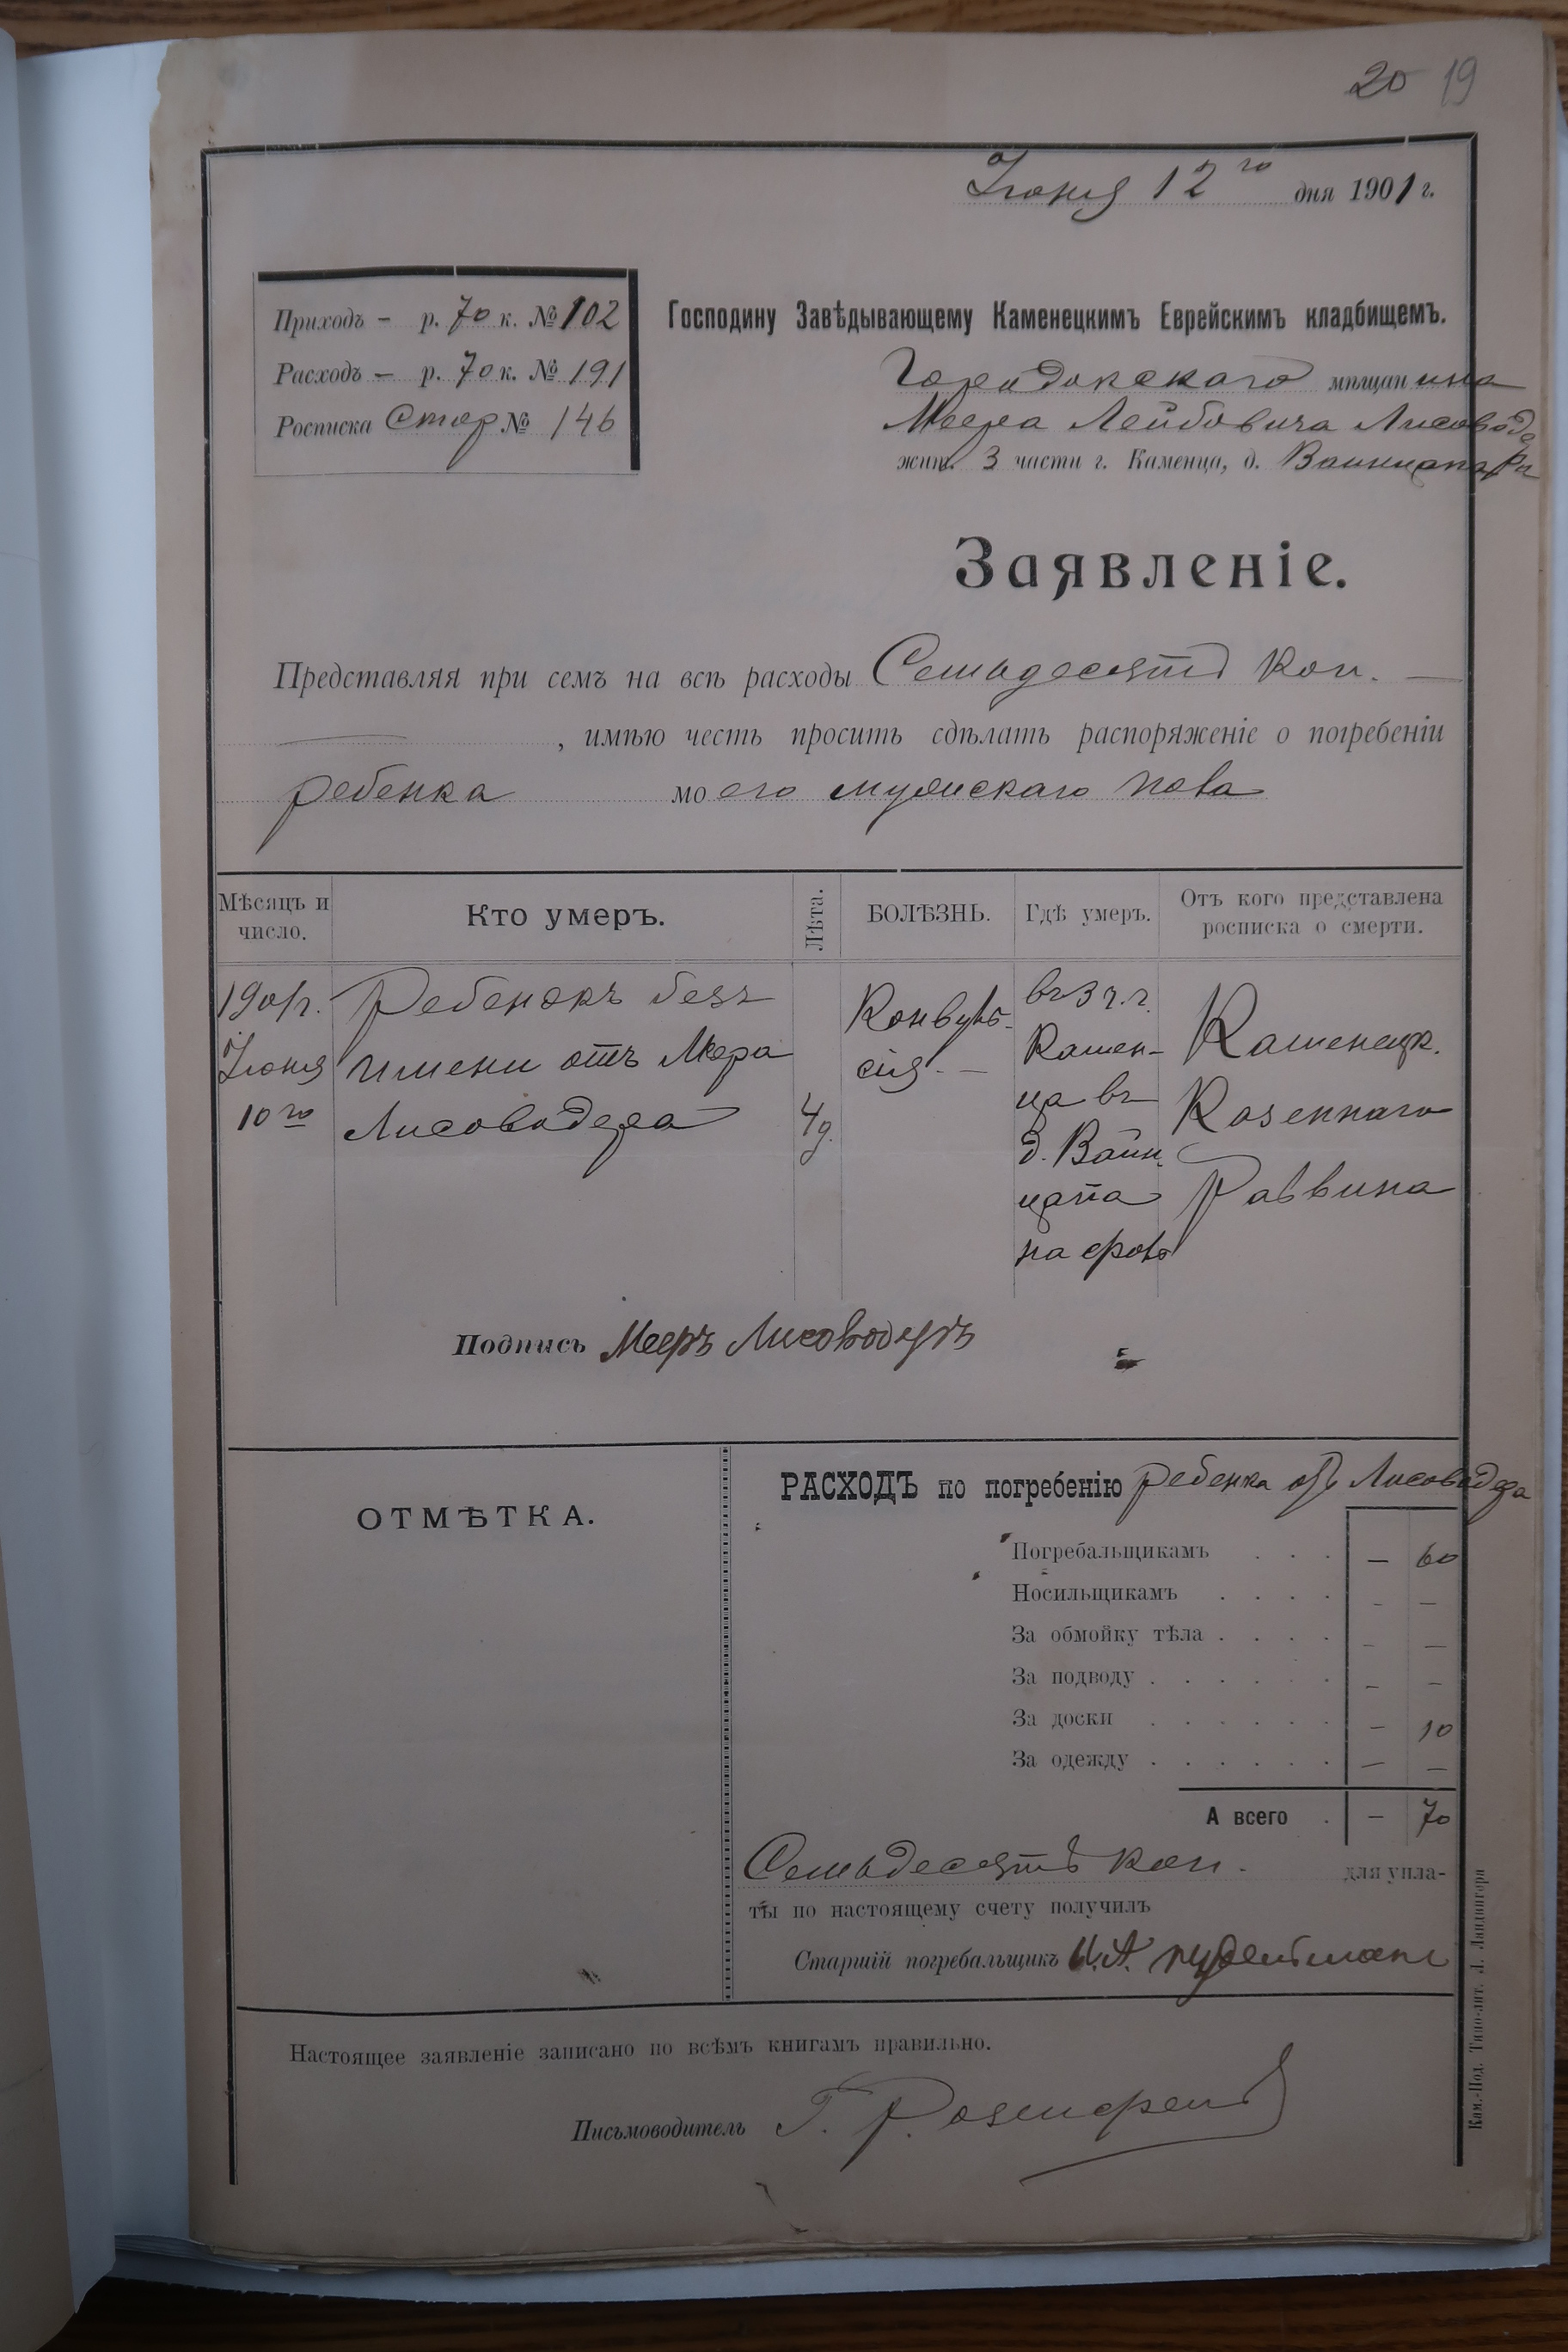 20 19
Іюня 12го дня 1901 г.
Приходъ – р. 70 к. № 102
Расходъ – р. 70 к. № 191
Росписка Стор № 146
Господину Завѣдывающему Каменецкимъ Еврейскимъ кладбищемъ.
Городокскаго мѣщанина
Меера Лейбовича Лисоводера
жит. 3 части г. Каменца, д.
Заявленіе.
Представляя при семъ на всѣ расходы Семьдесятъ коп. —
, имѣю честь просить сдѣлать распоряженіе о погребеніи
ребенка моего мужскаго пола
Мѣсяцъ и число.
Кто умеръ.
Лѣта.
БОЛѢЗНЬ.
Гдѣ умеръ.
Отъ кого представлена росписка о смерти.
1901г.
Іюня
10го
Ребенокъ безъ
имени отъ Меера
Лисоводера
4 д.
Конвуль-
сія. —
въ 3 ч. г.
Камен-
ца въ
д. Вайн-
цапа
Каменецк.
Казеннаго
Раввина
Подпись Мееръ Лисоводеръ
ОТМѢТКА.
РАСХОДЪ по погребенію ребенка отъ Лисоводера
Погребальщикамъ . . . – 60
Носильщикамъ . . . . – –
За обмойку тѣла . . . . – –
За подводу . . . . . . – –
За доски . . . . . . – 10
За одежду . . . . . . – –
А всего . – 70
Семьдесятъ коп. для упла-
ты по настоящему счету получилъ
Старшій погребальщикъ
Настоящее заявленіе записано по всѣмъ книгамъ правильно.
Письмоводитель Г. Розенфельд
Кам.-Под. Типо-лит. Л. Ландвигера